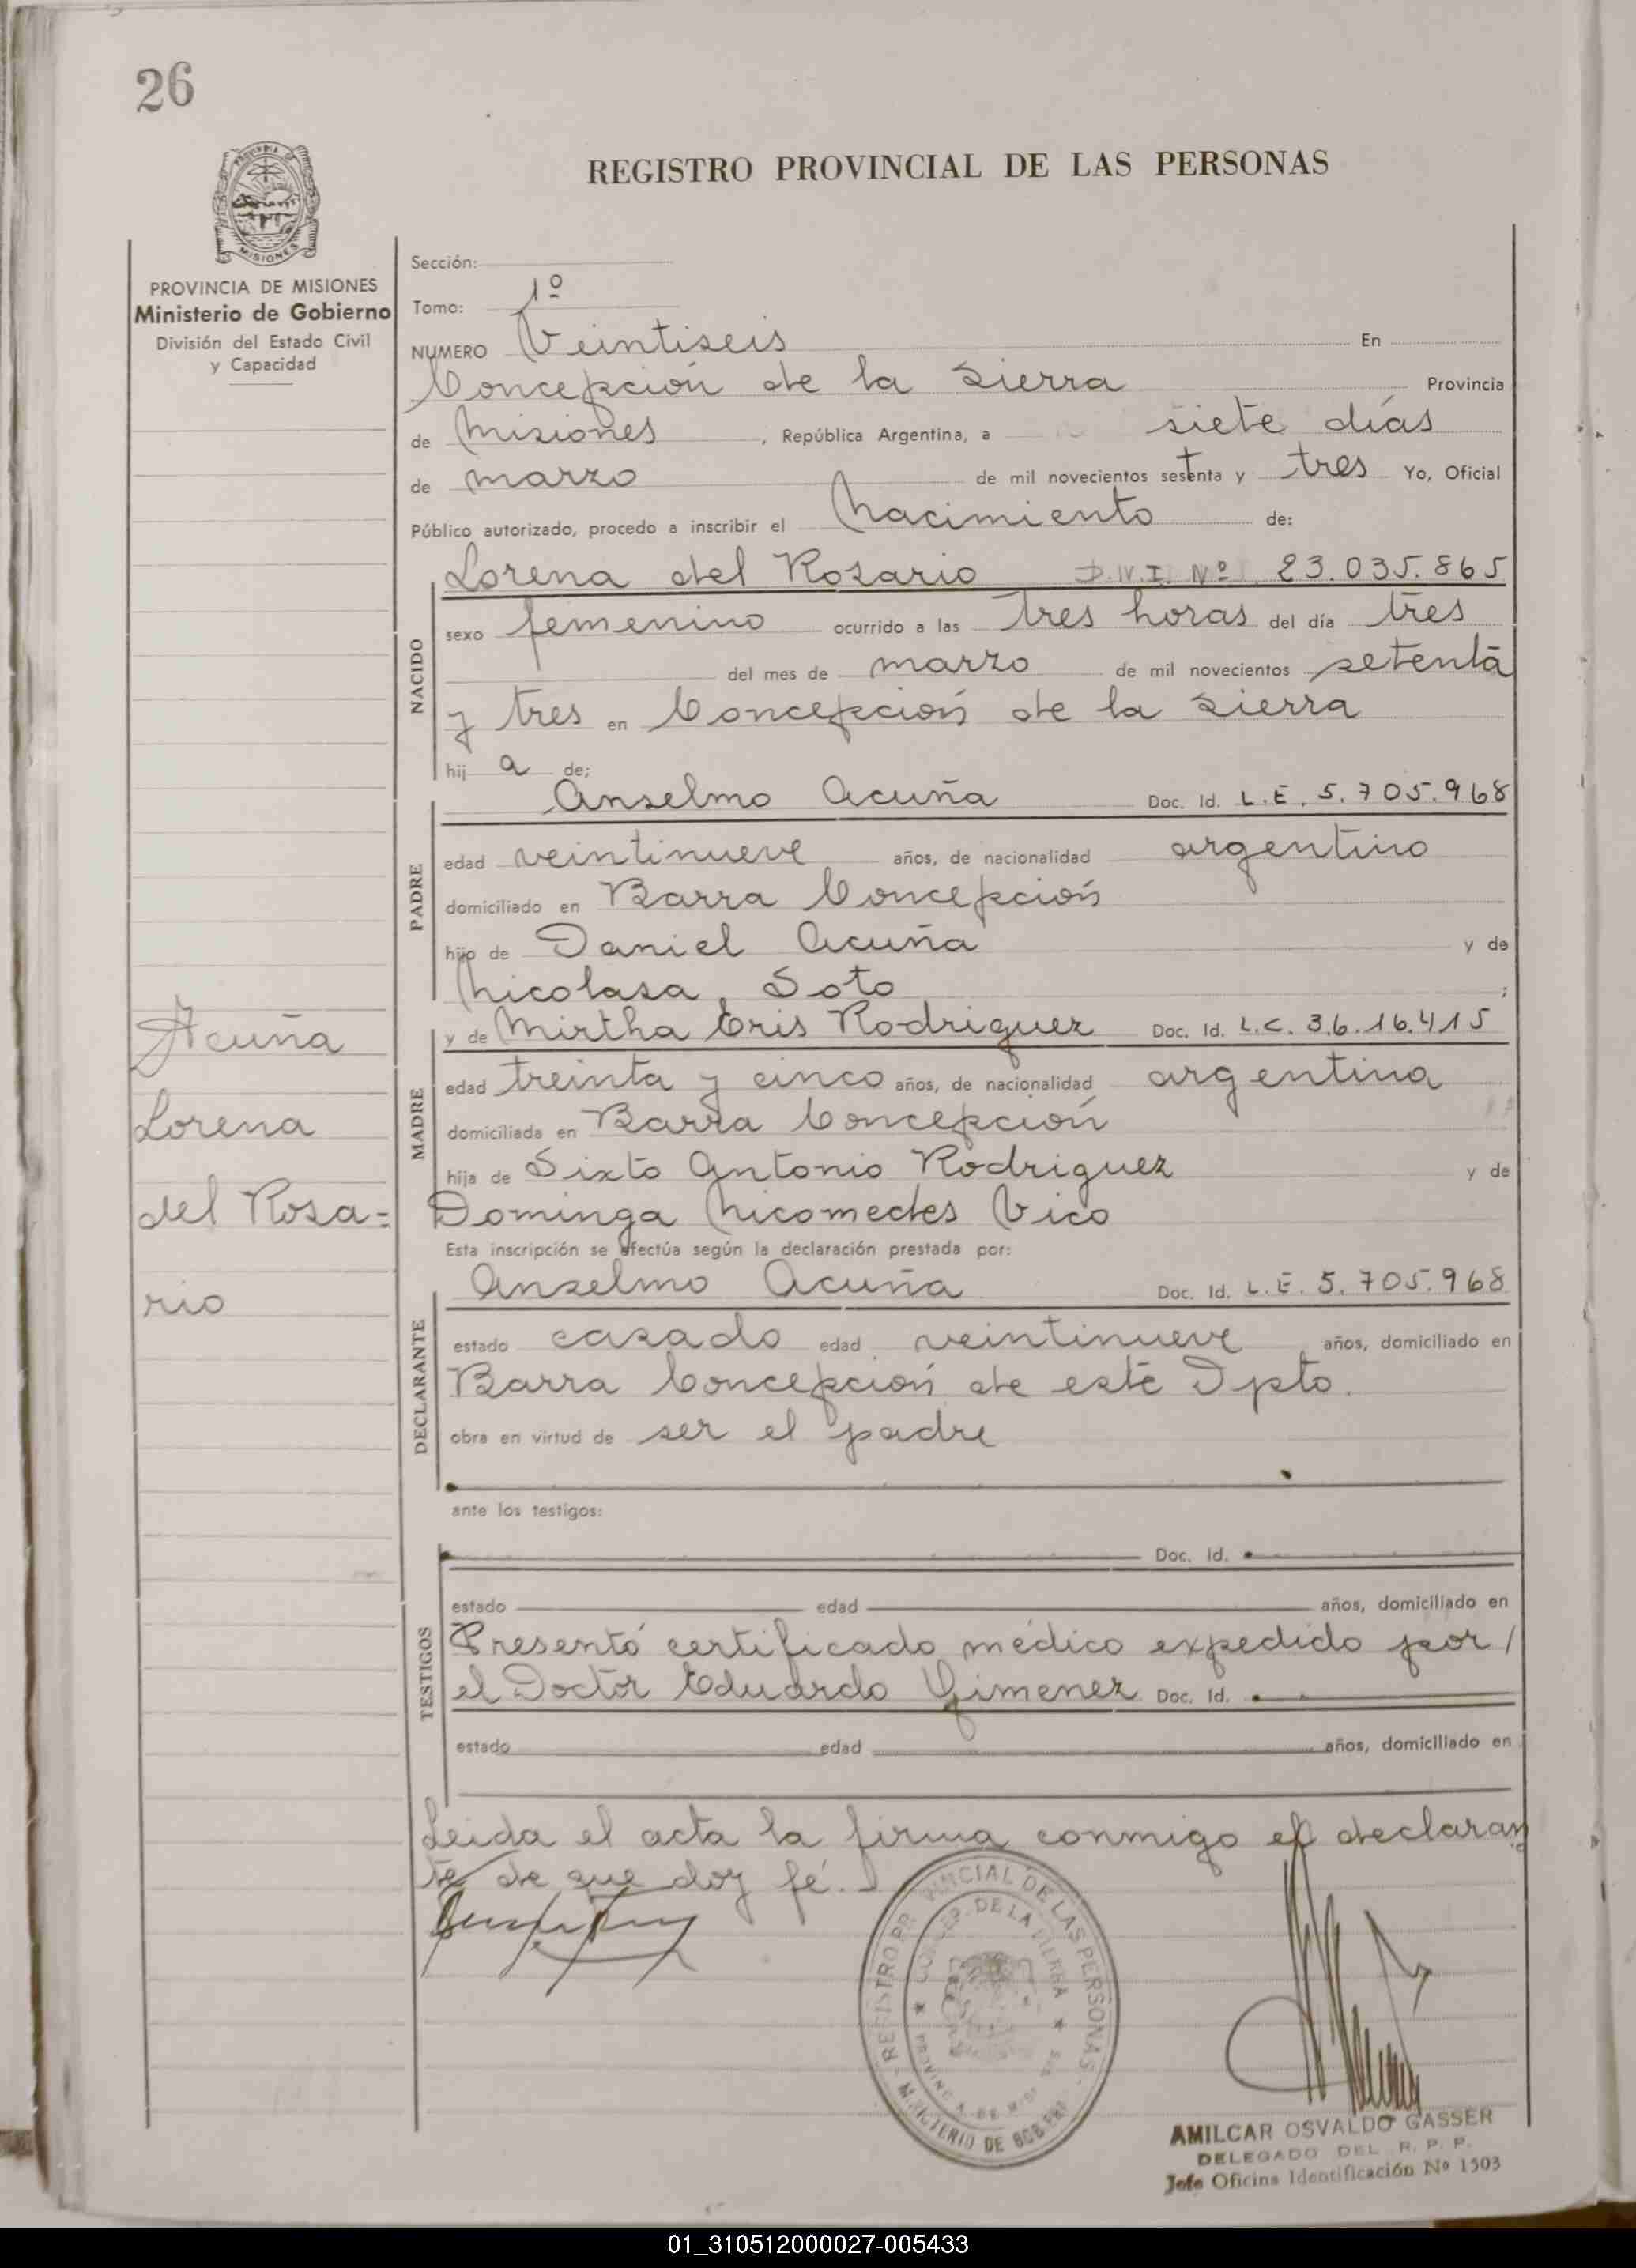 26
REGISTRO PROVINCIAL DE LAS PERSONAS
PROVINCIA DE
MISIONES
PROVINCIA DE MISIONES
Ministerio de Gobierno
División del Estado Civil
y Capacidad
Sección:
Tomo: 1º
NUMERO Veintiseis En
Concepción de la Sierra Provincia
de Misiones, República Argentina, a siete días
de marzo de mil novecientos setenta y tres Yo, Oficial
Público autorizado, procedo a inscribir el Nacimiento de:
NACIDO
Lorena del Rosario D.N.I. Nº 23.035.865
sexo femenino ocurrido a las tres horas del día tres
del mes de marzo de mil novecientos setenta
y tres en Concepción de la Sierra
hij a de;
PADRE
Anselmo Acuña Doc. Id. L.E. 5.705.968
edad veintinueve años, de nacionalidad argentino
domiciliado en Barra Concepción
hijo de Daniel Acuña y de
Nicolasa Soto ;
MADRE
y de Mirtha Eris Rodriguez Doc. Id. L.C. 3.6.16.415
edad treinta y cinco años, de nacionalidad argentina
domiciliada en Barra Concepción
hija de Sixto Antonio Rodriguez y de
Dominga Nicomedes Vico
Acuña
Lorena
del Rosa=
rio
Esta inscripción se efectúa según la declaración prestada por:
DECLARANTE
Anselmo Acuña Doc. Id. L.E. 5.705.968
estado casado edad veintinueve años, domiciliado en
Barra Concepción de este Dpto.
obra en virtud de ser el padre
ante los testigos:
TESTIGOS
Doc. Id.
estado edad años, domiciliado en
Presentó certificado médico expedido por /
el Doctor Eduardo Gimenez Doc. Id.
estado edad años, domiciliado en
Leida el acta la firma conmigo el declaran
te de que doy fé.
REGISTRO PROVINCIAL DE LAS PERSONAS
CONCEP. DE LA SIERRA
PROVINCIA DE MISIONES
MINISTERIO DE GOBIERNO
AMILCAR OSVALDO GASSER
DELEGADO DEL R. P. P.
Jefe Oficina Identificación Nº 1503
01_310512000027-005433